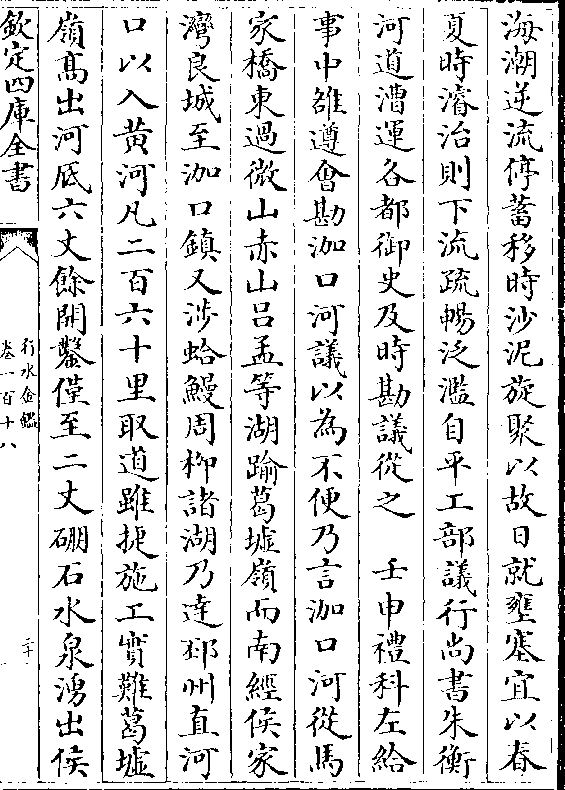 海潮逆流停蓄移時沙泥旋聚以故日就壅塞宜以春
夏時濬治則下流疏暢泛濫自平工部議行尚書朱衡
河道漕運各都御史及時勘議從之　壬申禮科左給
事中雒遵會勘泇口河議以為不便乃言泇口河從馬
家橋東過微山赤山呂孟等湖踰葛墟嶺而南經侯家
灣良城至泇口鎮又涉蛤鰻周柳諸湖乃達邳州直河
口以入黃河凡二百六十里取道雖捷施工實難葛墟
嶺髙出河底六丈餘開鑿僅至二丈硼石水泉湧出侯
欽定四庫全書
行水金鑑
卷一百十八
二十